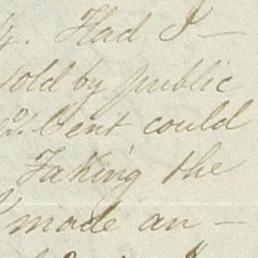 Had I —
told by public
Cent could
Taking the
made an —